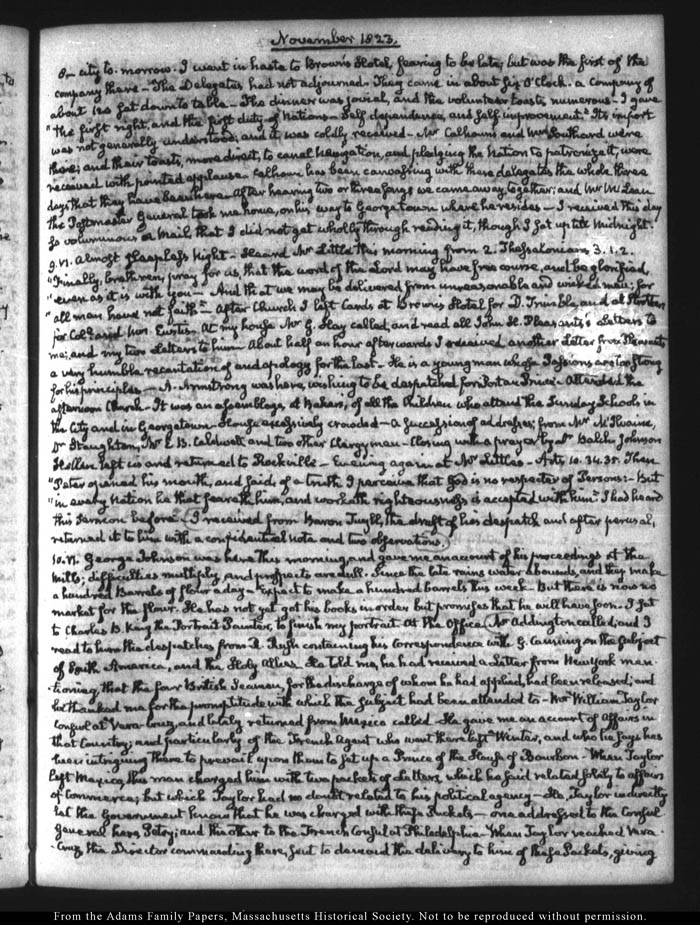 November 1823.
8— city to-morrow. I went in haste to Brown's Hotel, fearing to be late; but was the first of the
company there— The Delegates had not adjourned. They came in about six O'Clock. a Company of
about 120 sat down to table— The dinner was jovial, and the volunteer toasts, numerous— I gave
"the first right, and the first duty of Nations— Self dependence, and self improvement." Its import
was not generally understood; and it was coldly received— Mr Calhoun and Mr Southard were
there; and their toasts, more direct, to canal Navigation, and pledging the Nation to patronize it, were
received with pointed applause— Calhoun has been canvassing with these delegates the whole three
days that they have been here— After hearing two or three songs we came away together; and Mr McLean
the Postmaster General took me home, on his way to Georgetown where he resides— I received this day
so voluminous a Mail that I did not get wholly through reading it, though I sat up till Midnight.
9. VI. Almost sleepless Night— Heard Mr Little this morning from 2. Thessalonians 3. 1. 2.
"Finally, brethren, pray for us, that the word of the Lord may have free course, and be glorified,
"even as it is with you— And that we may be delivered from unreasonable and wicked men; for
"all men have not faith"— After Church I left Cards at Brown's Hotel for D. Trimble, and at
for Coll. and Mrs. Eustis. At my house Mr G. Hay called, and read all John H. Pleasants's Letters to
me; and my two Letters to him— About half an hour afterwards I received another Letter from Pleasants,
a very humble recantation of and apology for the last— He is a young man whose Passions are too strong
for his principles— A. Armstrong was here, wishing to be despatched for Port au Prince— Attended the
afternoon Church— It was an assemblage, at Baker's, of all the Children who attend the Sunday Schools in
the City and in Georgetown— House excessively crowded— a succession of addresses, from Mr McIlvaine,
Dr Staughton, Mr E. B. Caldwell, and two other Clergymen— Closing with a prayer by Mr Balch— Johnson
Hellen left us and returned to Rockville— Evening again at Mr Little's— Acts, 10. 34. 35. Then
"Peter opened his mouth, and said, of a truth, I perceive that God is no respecter of Persons:— But
"in every Nation he that feareth him, and worketh righteousness is accepted with him." I had heard
this Sermon before— I received from Baron Tuyll, the draft of his despatch and after perusal,
returned it to him with a confidential note and two observations.
10. VI. George Johnson was here this morning and gave me an account of his proceedings at the
Mills; difficulties multiply, and prospects are dull. Since the late rains water abounds, and they make
a hundred Barrels of flour a day— Expect to make a hundred barrels this week— But there is now no
market for the flour. He has not yet got his books in order but promises that he will have soon. I sat
to Charles B. King the Portrait Painter, to finish my portrait. At the Office, Mr Addington called; and I
read to him the despatches from R. Rush containing his Correspondence with G. Canning on the subject
of South America, and the Holy Allies. He told me, he had received a Letter from New York men-
tioning, that the four British Seamen, for the discharge of whom he had applied, had been released; and
he thanked me for the promptitude with which the subject had been attended to— Mr William Taylor
Consul at Vera-Cruz, and lately returned from Mexico called— He gave me an account of Affairs in
that Country; and particularly of the French Agent who went there last Winter, and who he says has
been intriguing there to prevail upon them to set up a Prince of the House of Bourbon— When Taylor
left Mexico, this man charged him with two packets of Letters, which he said related solely to affairs
of Commerce; but which Taylor had no doubt related to his political agency— He, Taylor indirectly
let the Government know that he was charged with these Packets— one addressed to the Consul
General here, Petry; and the other to the French Consul at Philadelphia. When Taylor reached Vera-
-Cruz, the Director commanding there, sent to demand the delivery to him of these Packets, giving
From the Adams Family Papers, Massachusetts Historical Society. Not to be reproduced without permission.